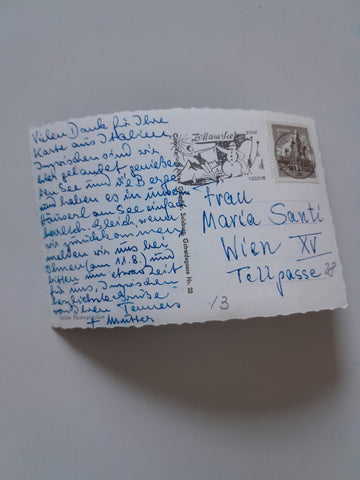 Vielen Dank für Ihre
Karte aus Italien.
Inzwischen sind wir
hier gelandet, genießen
den See und die Berge
und haben es in unserem
Häuserl am See einfach
herrlich. Gleich, wenn
wir zurückkommen,
melden wir uns bei
Ihnen (am 11.8.) und
bitten um etwas Zeit
für uns, Inzwischen
herzlichste Grüße
von Ihren
+ Mutter
Zell am See
Frau
Maria Santi
Wien XV
Tellgasse 28
13
Salzburg, Getreidegasse Nr. 22